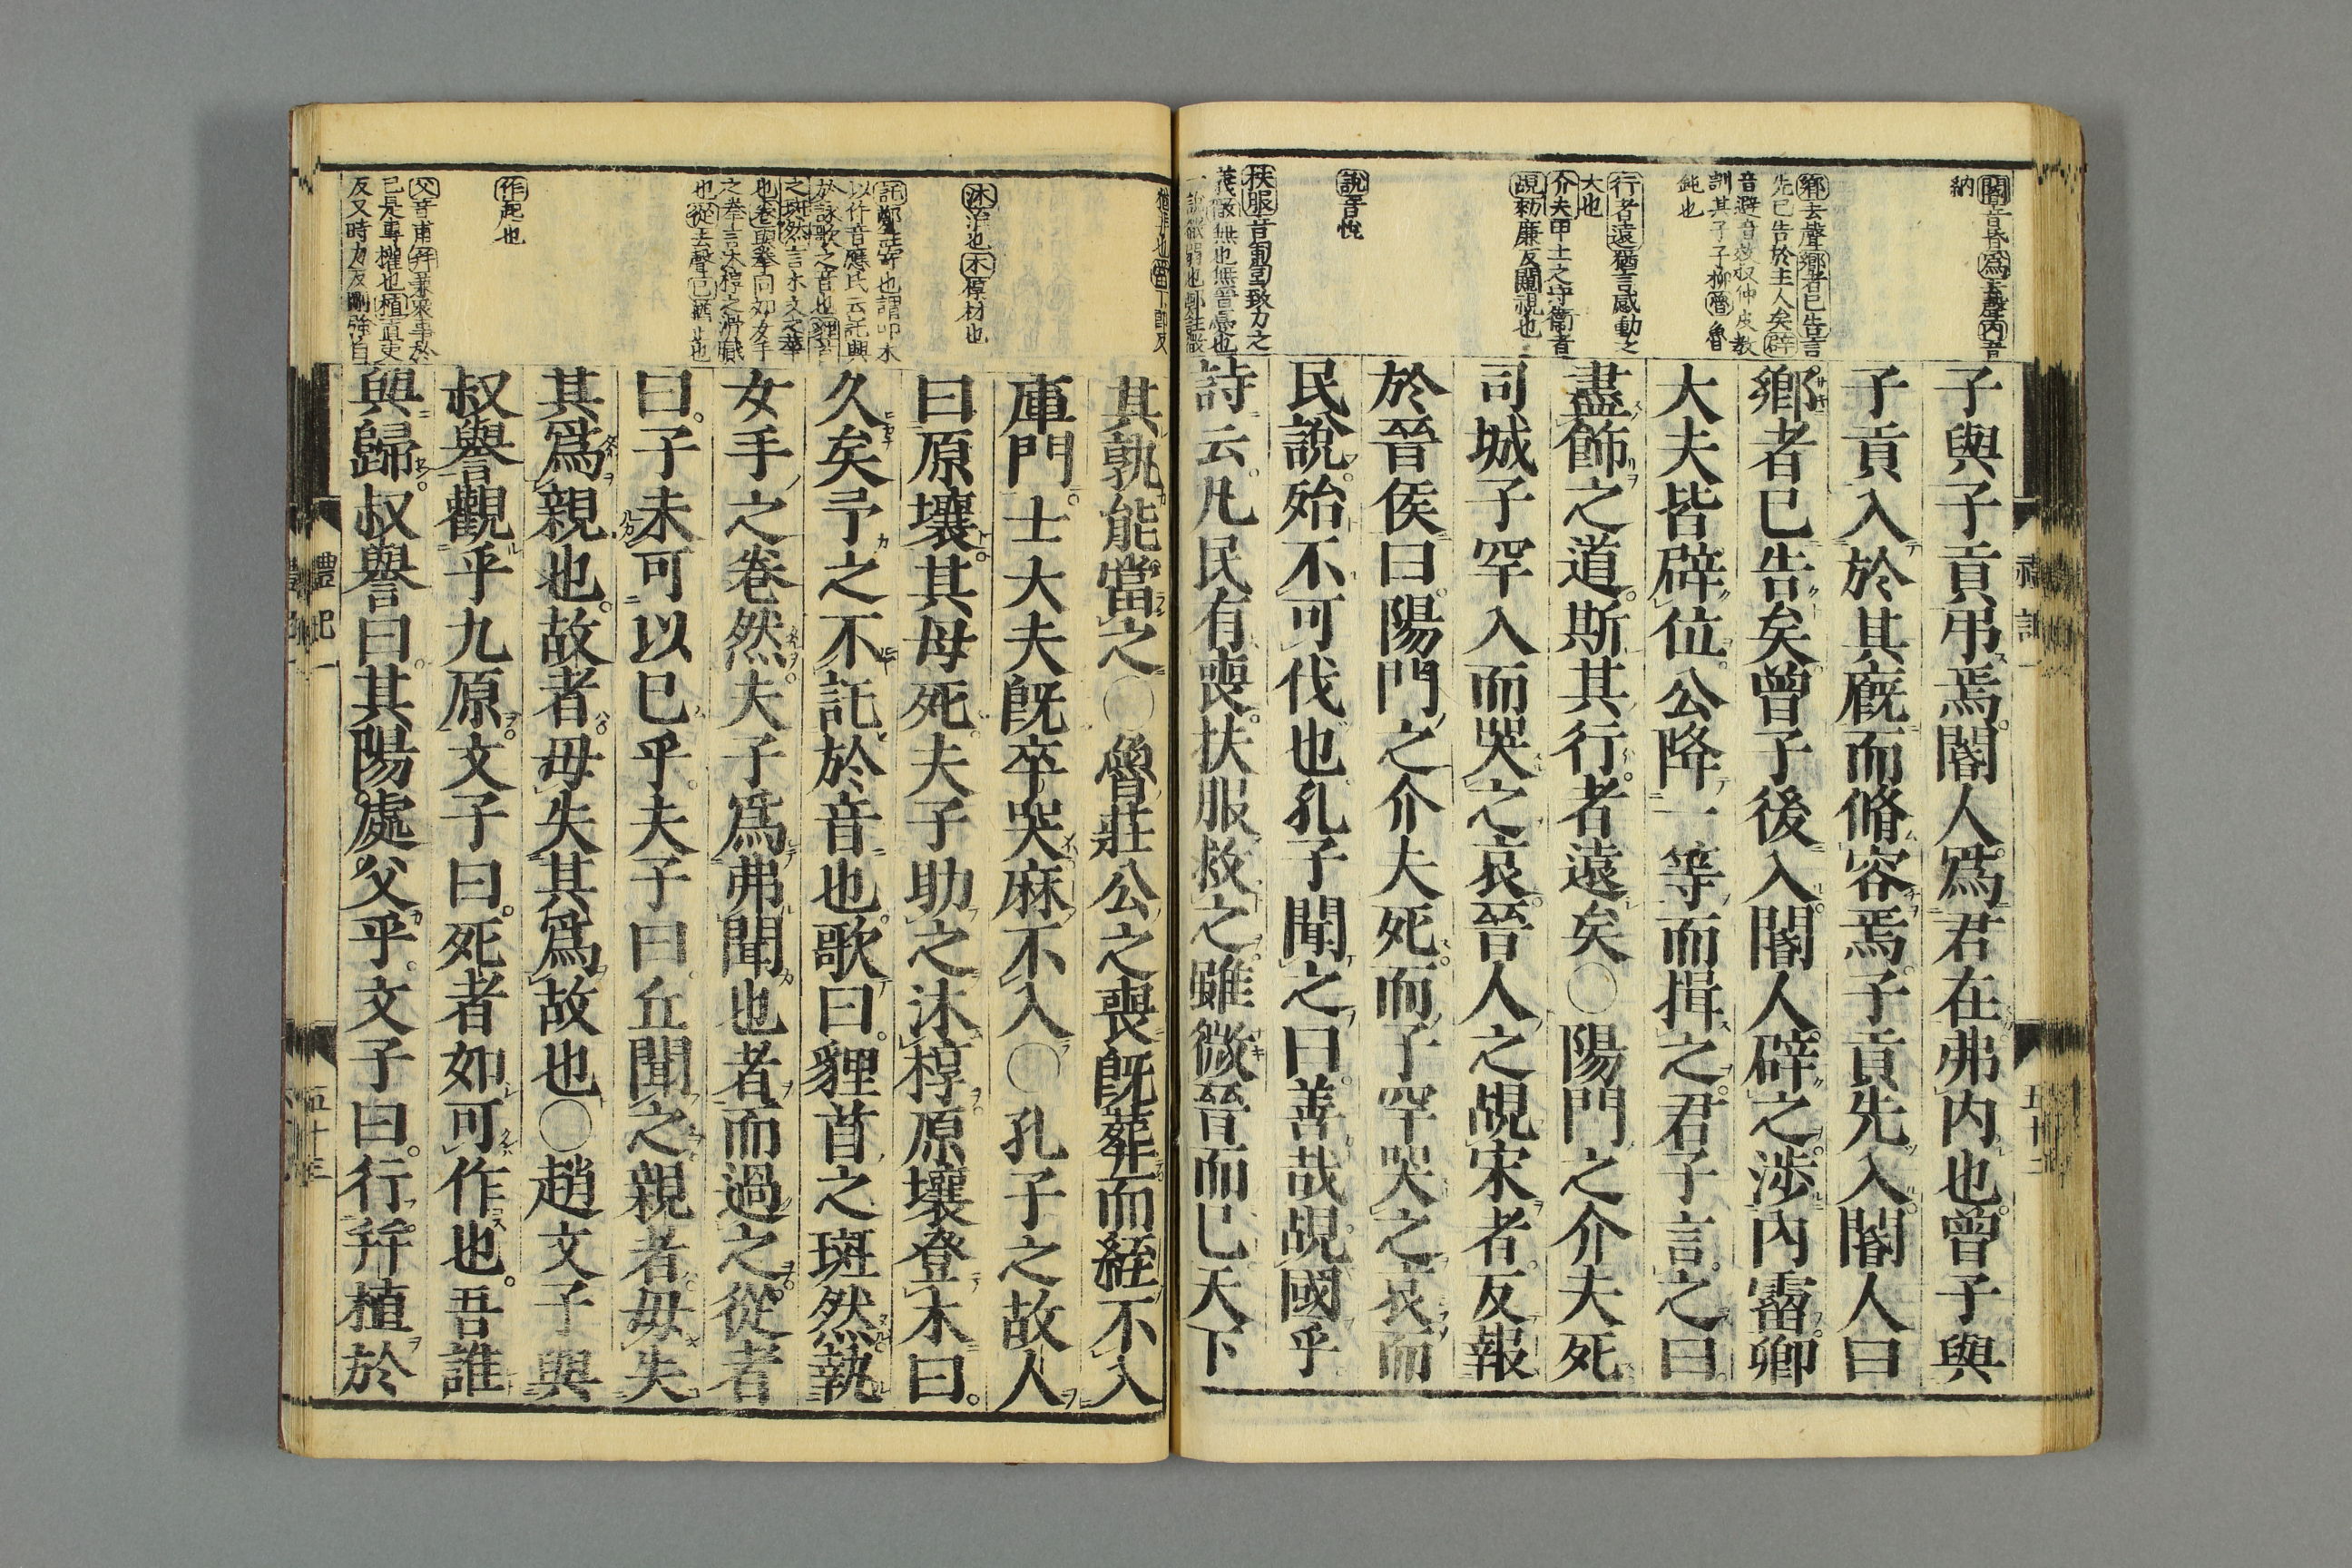 子與子貢弔焉閽人爲君在弗内也曾子與
子貢入於其廐而脩容焉子貢先入閽人曰
鄉者已告矣曾子後入閽人辟之涉内霤卿
大夫皆辟位公降一等而揖之君子言之曰
盡飾之道斯其行者遠矣○陽門之介夫死
司城子罕入而哭之哀晉人之覘宋者反報
於晉侯曰陽門之介夫死而子罕哭之哀而
民說殆不可伐也孔子聞之曰善哉覘國乎
詩云凡民有喪扶服救之雖微晉而已天下
其孰能當之○魯莊公之喪既葬而絰不入
庫門士大夫既卒哭麻不入○孔子之故人
曰原壤其母死夫子助之沐椁原壤登木曰
久矣予之不託於音也歌曰貍首之斑然執
女手之卷然夫子爲弗聞也者而過之從者
曰子未可以已乎夫子曰丘聞之親者毋失
其爲親也故者毋失其爲故也○趙文子與
叔譽觀乎九原文子曰死者如可作也吾誰
與歸叔譽曰其陽處父乎文子曰行幷植於
閽音昏爲去聲内音
納
鄉去聲鄉者已告言
先已告於主人矣辟
音避
訓其子子柳
魯
鈍也
行者遠猶言感動之
大也
介夫甲士之守衛者
覘勑廉反闚視也
說音悅
扶服音匍匐致力之
沐治也木椁材也
作起也
禮記一
五十三